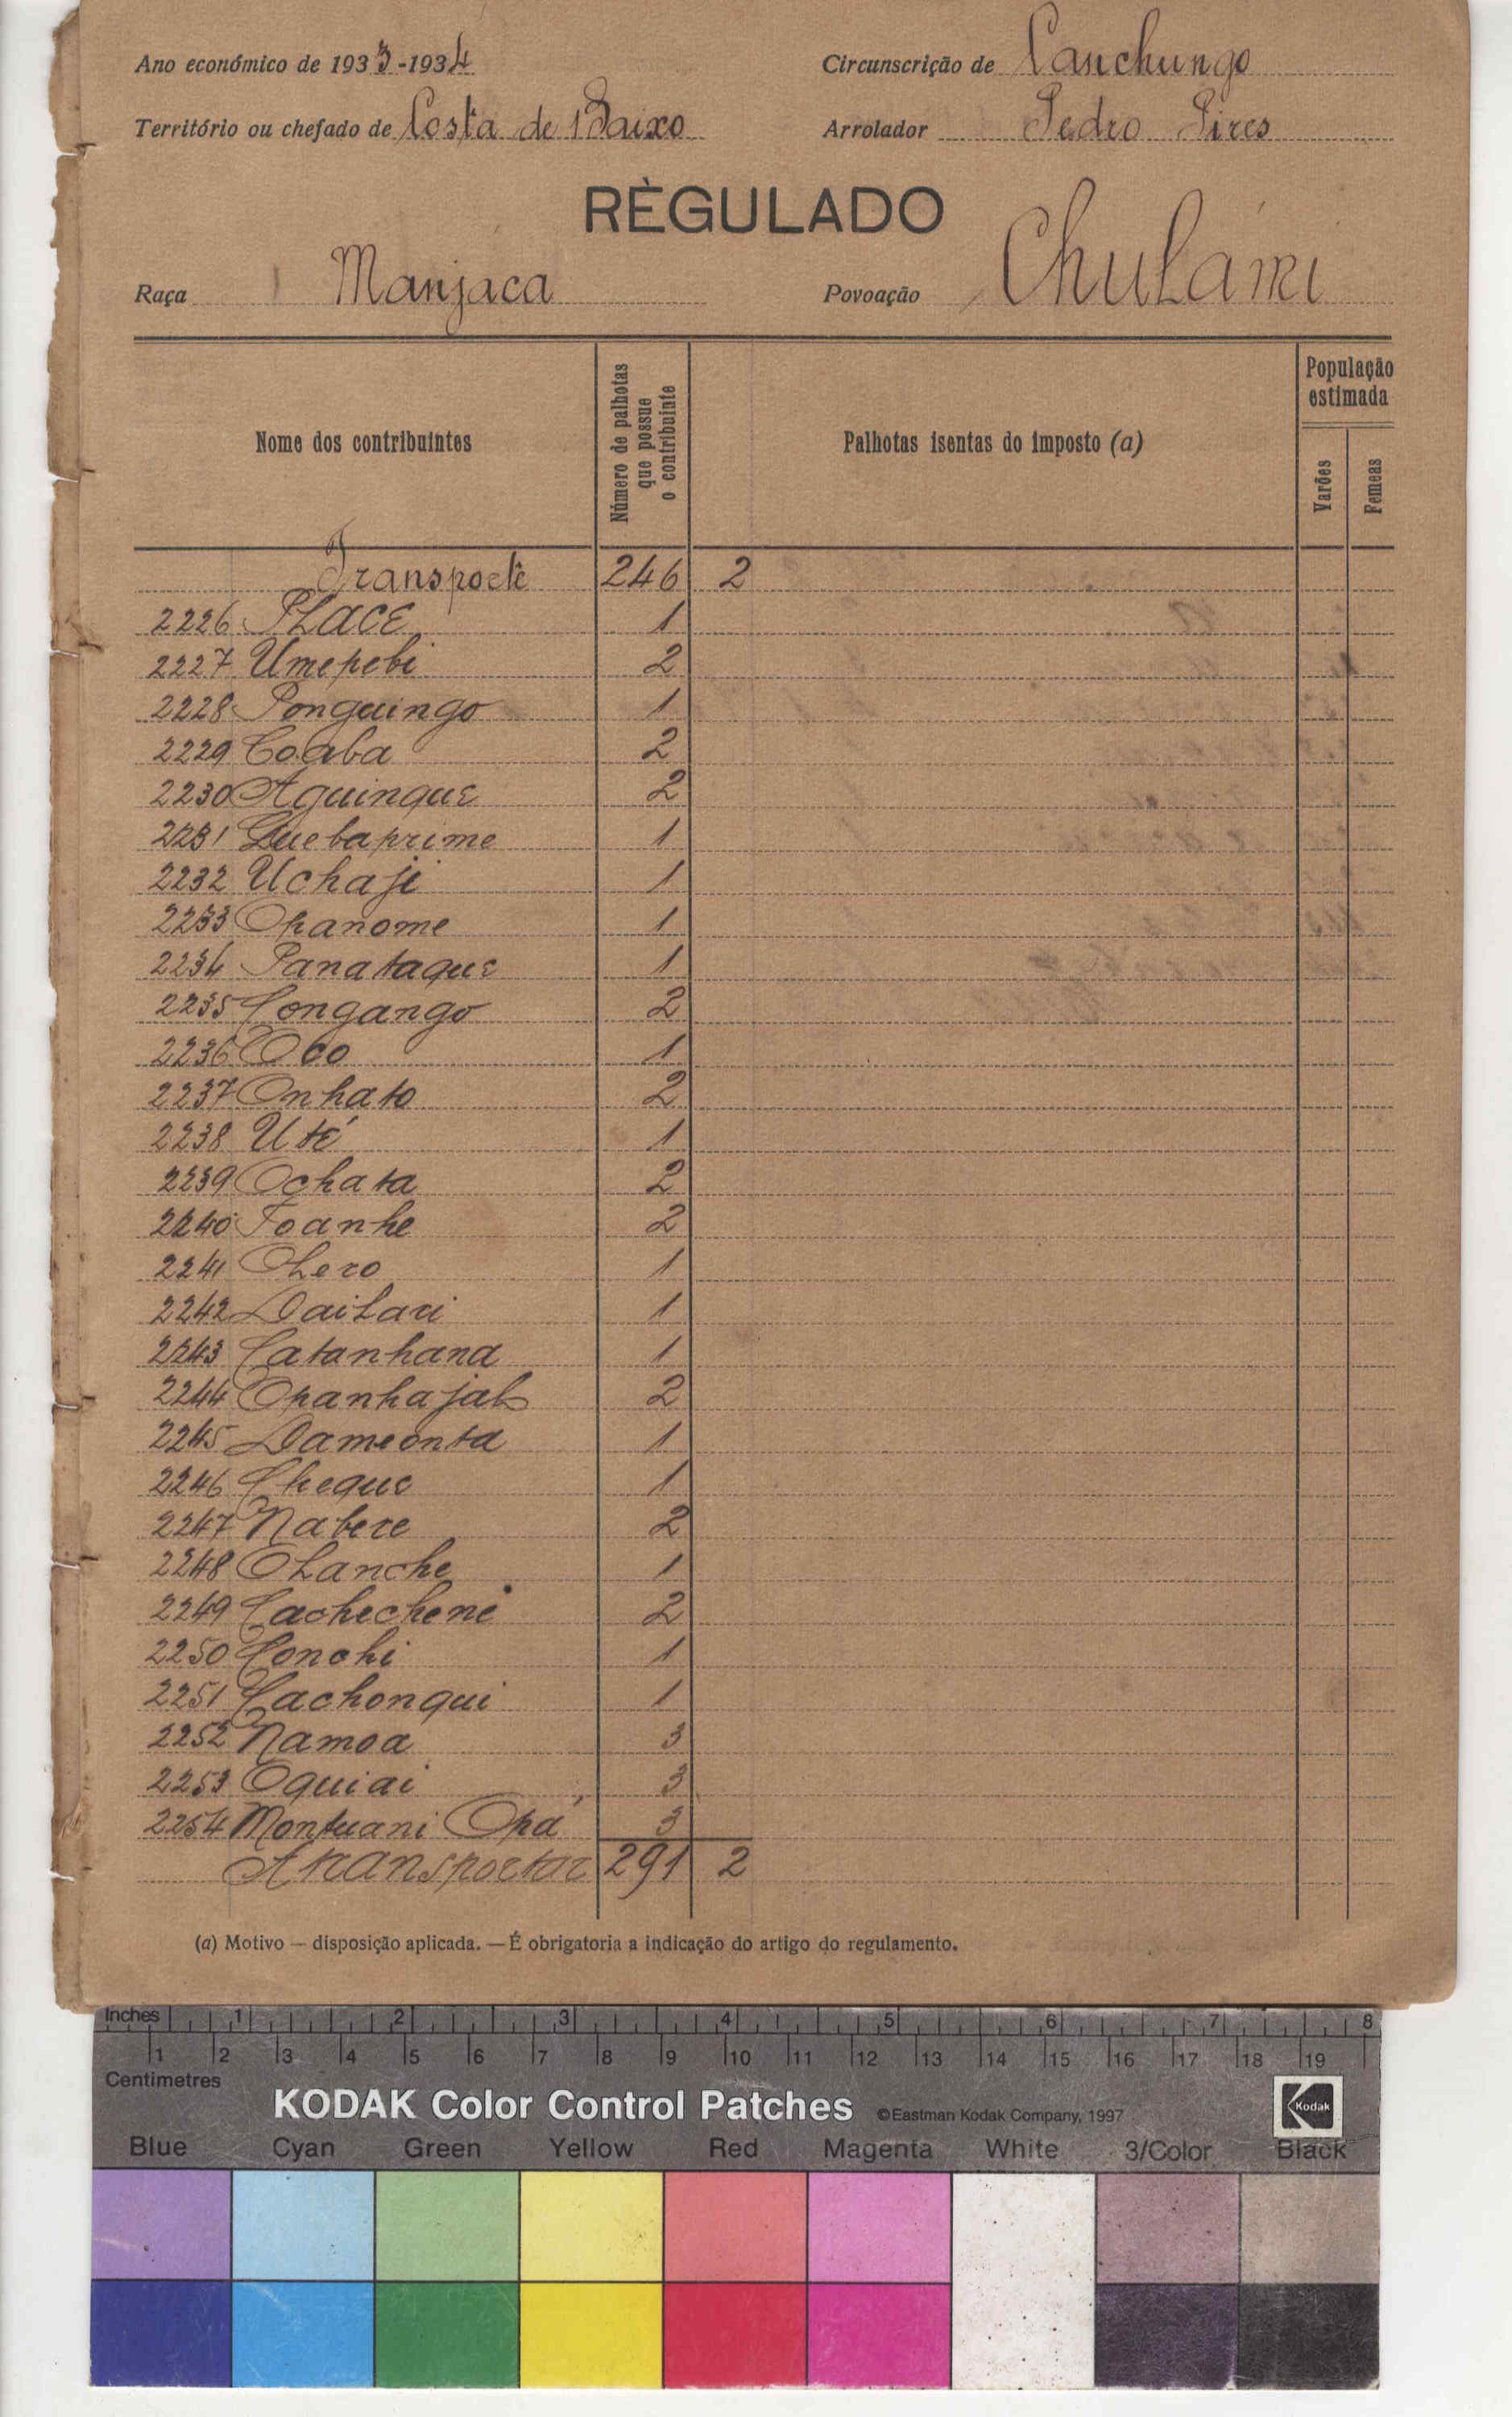 Ano económico de 1933-1934 Circunscrição de Canchungo
Território ou chefado de Costa de Baixo Arrolador Pedro Pires
RÈGULADO
Raça Manjaca Povoação Chulámi
Nome dos contribuintes
Número de palhotas que possue o contribuinte
Palhotas isentas do imposto (a)
População estimada
Varões
Femeas
Transporte 246 2
2226 PLACE 1
2227 Umepebi 2
2228 Ponguingo 1
2229 Coaba 2
2230 Aguinque 2
2231 Quebaprime 1
2232 Uchaji 1
2233 Opanome 1
2234 Panataque 1
2235 Congango 2
2236 Oco 1
2237 Onhato 2
2238 Uté 1
2239 Ochata 2
2240 Toanhe 2
2241 Olero 1
2242 Dailari 1
2243 Catanhana 1
2244 Opanhajal 2
2245 Dameonta 1
2246 Cheque 1
2247 Nabere 2
2248 Olanche 1
2249 Cachechene 2
2250 Conchi 1
2251 Cachonqui 1
2252 Namoa 3
2253 Oquiai 3
2254 Montuani Opá 3
A transportar 291 2
(a) Motivo — disposição aplicada. — É obrigatoria a indicação do artigo do regulamento.
Inches 1 2 3 4 5 6 7 8
1 2 3 4 5 6 7 8 9 10 11 12 13 14 15 16 17 18 19
Centimetres
KODAK Color Control Patches ©Eastman Kodak Company, 1997 Kodak
Blue Cyan Green Yellow Red Magenta White 3/Color Black